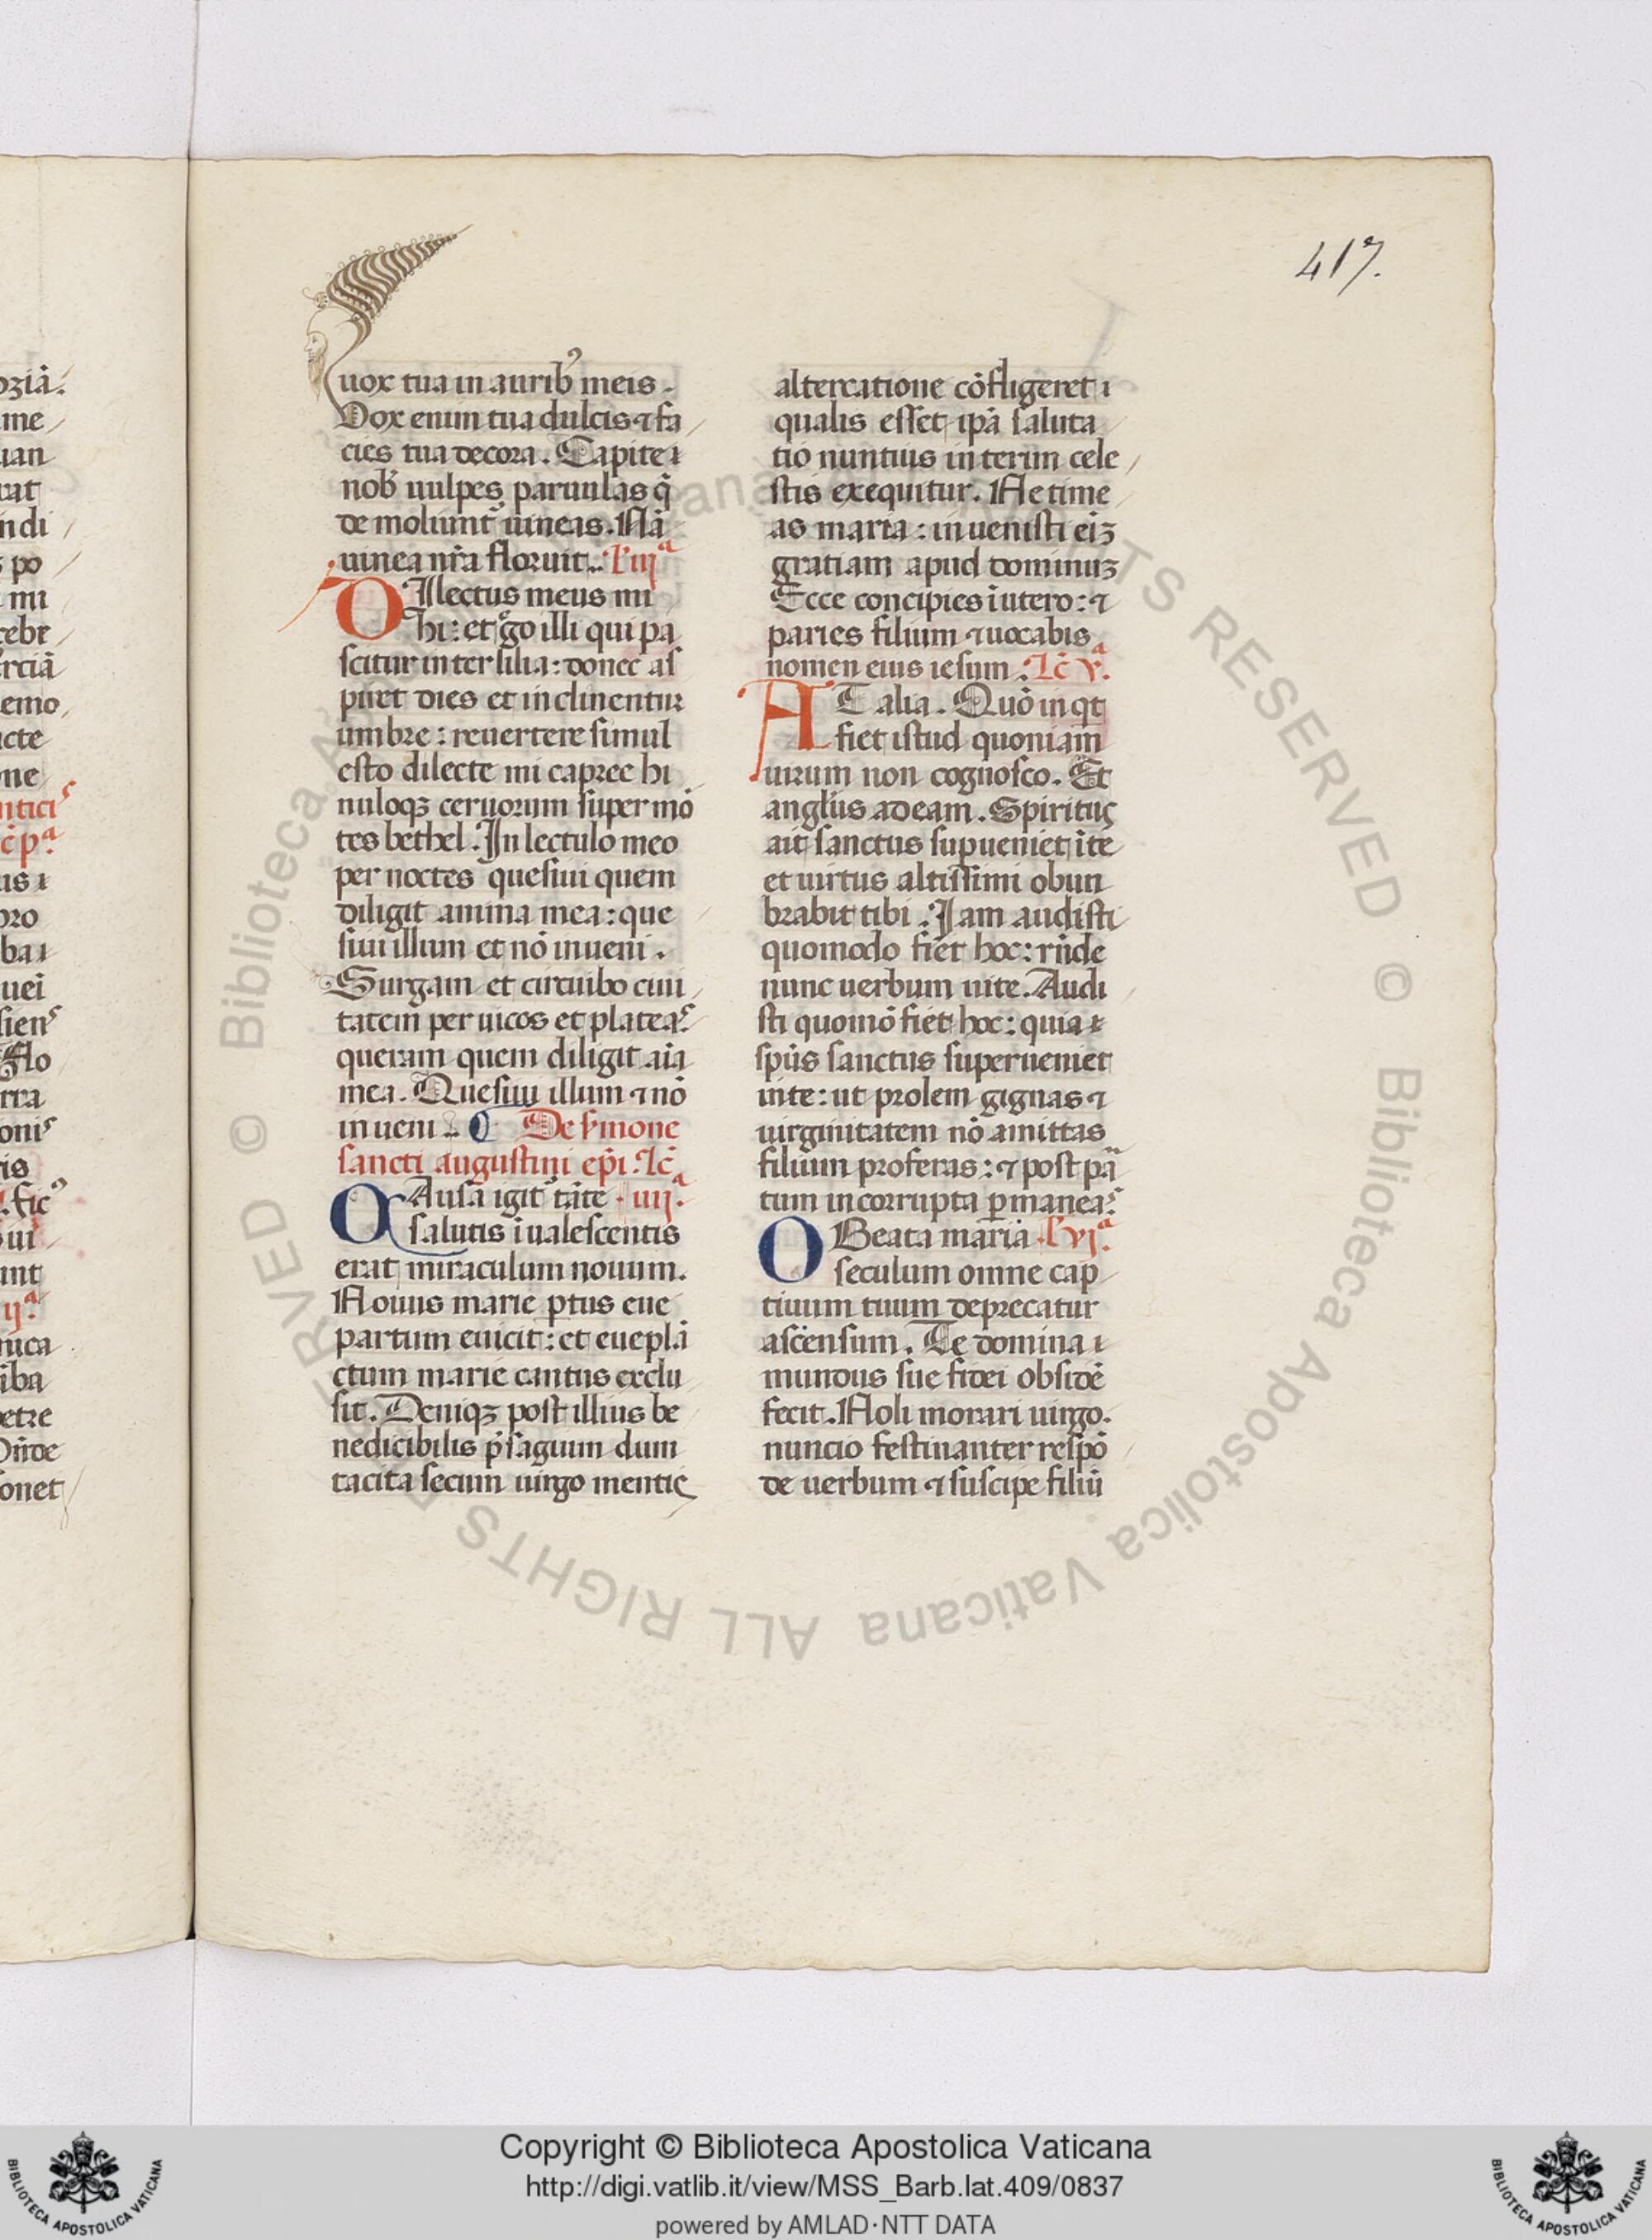 417.
ozia᷃.
me
uan
rat
ndi
po
mi
cebr
rcia᷃
emo
cte
ne
ntici
us
pro
ba
uei
sien
Flo
rra
onis
is
fic
ui
unt
ij.ª
nica
iba
petre
Onde
sonet
uox tua in aurib⁹ meis.
Vox enim tua dulcis ⁊ fa
cies tua decora. Capite
nob̕ uulpes paruulas q̄
de moliunt᷑ uineas. Nā
uinea nr̄a floruit. l᷑. iijª
DIlectus meus mi
hi: et ego illi qui pa
scitur inter lilia: donec as
piret dies et in clinentur
umbre: reuertere simul
esto dilecte mi capree hi
nuloqꝫ ceruorum super mō
tes bethel. In lectulo meo
per noctes quesiui quem
diligit anima mea: que
siui illum et nō inueni.
Surgam et circuibo ciui
tatem per uicos et plateas
queram quem diligit aīa
mea. Quesiui illum ⁊ nō
inueni. ¶ De s̄mone
sancti augustini ep̄i. lc̄.
CAusa igit᷑ tāte. iiij.ª
salutis īualescentis
erat miraculum nouum.
Nouus marie ꝑtus eue
partum euicit: et eue plā
ctum marie cantus exclu
sit. Deniqꝫ post illius be
nedicibilis p̄sagium dum
tacita secum uirgo mentis
altercatione cōfligeret
qualis esset ip̄a saluta
tio nuntius interim cele
stis exequitur. Ne time
as maria: inuenisti eīꝫ
gratiam apud dominuꝫ
Ecce concipies ī utero: ⁊
paries filium ⁊ uocabis
nomen eius iesum. lc̄ v.ª
AT alia. Quō inqt
fiet istud quoniam
uirum non cognosco. Et
angl̄us ad eam. Spiritus
ait sanctus supueniet ī te
et uirtus altissimi obun
brabit tibi. Iam audisti
quomodo fiet hoc: rn̄de
nunc uerbum uite. Audi
sti quomō fiet hoc: quia
sp̄us sanctus superueniet
in te: ut prolem gignas ⁊
uirginitatem nō amittas
filium proferas: ⁊ post pa
tum incorrupta ꝑmaneas
O Beata maria l᷑. vj.ª
seculum omne cap
tiuum tuum deprecatur
asc̄ensum. Te domina
mundus sue fidei obsidē
fecit. Noli morari uirgo.
nuncio festinanter respō
de uerbum ⁊ suscipe filiū
© Biblioteca Apostolica Vaticana ALL RIGHTS RESERVED © Biblioteca Apostolica Vaticana ALL RIGHTS RESERVED
Copyright © Biblioteca Apostolica Vaticana
http://digi.vatlib.it/view/MSS_Barb.lat.409/0837
powered by AMLAD·NTT DATA
BIBLIOTECA APOSTOLICA VATICANA
BIBLIOTECA APOSTOLICA VATICANA